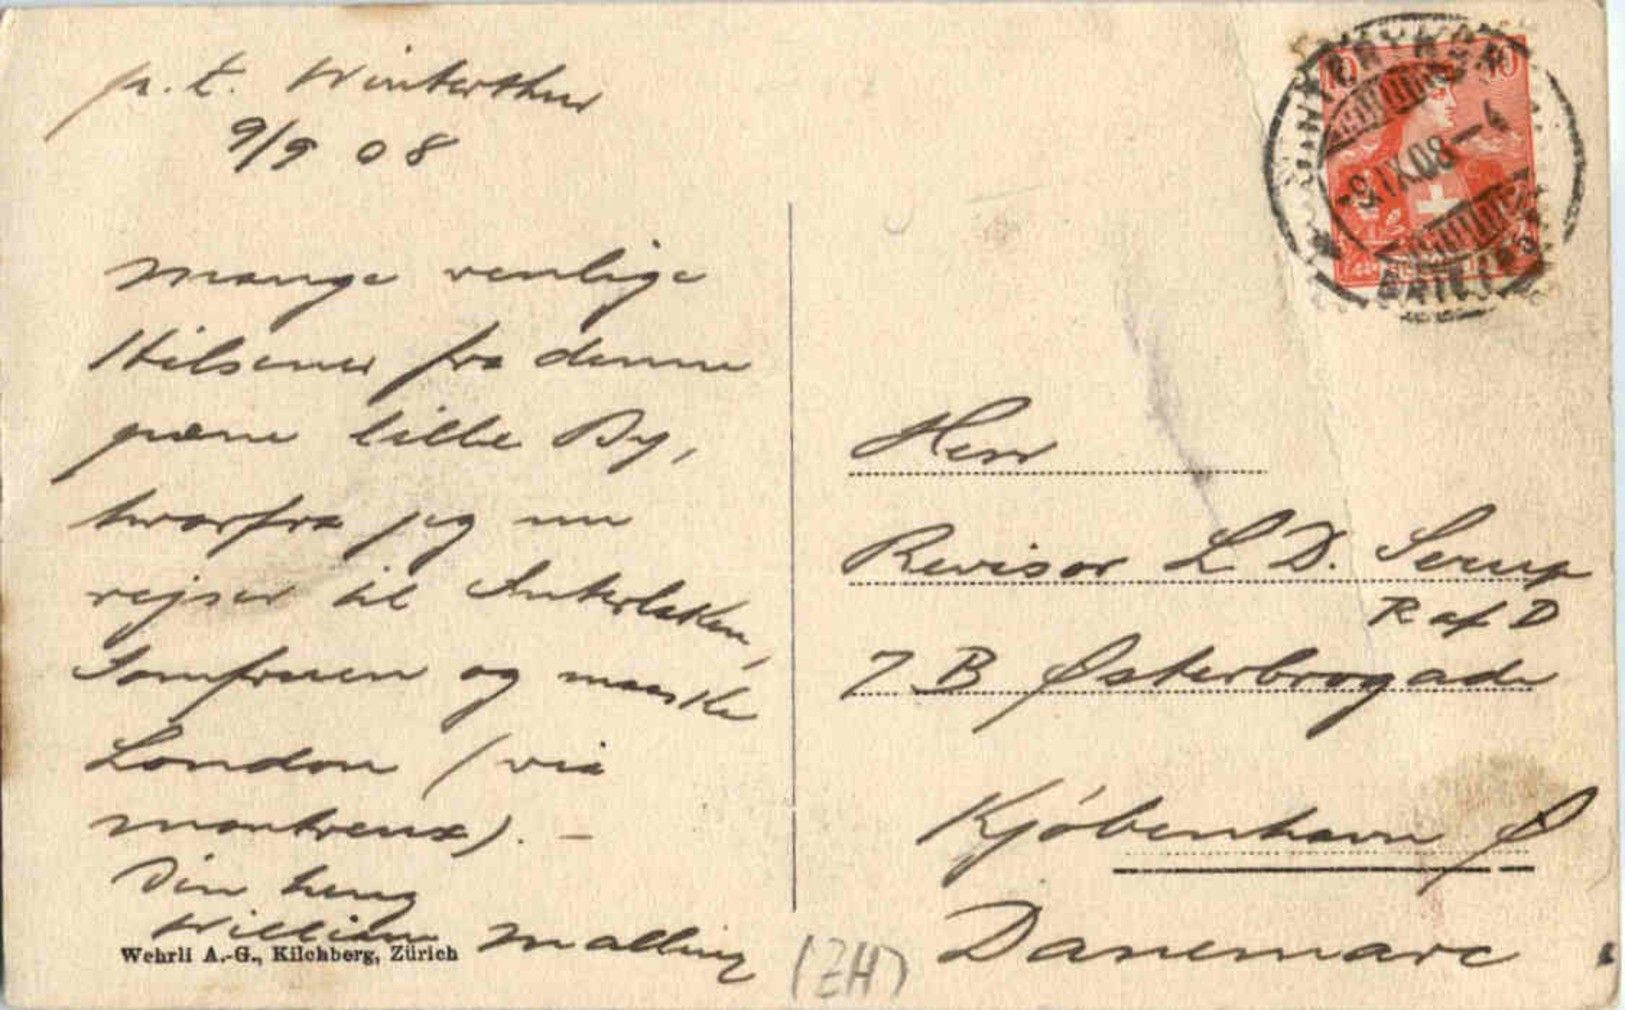 p. t. Winterthur
9/9 08
Mange venlige
Hilsener fra denne
pæne lille By,
hvorfra jeg nu
rejser til Interlaken,
Jomfruen og maaske
London (via
Montreux). –
Din heng
William Malling
Wehrli A.-G., Kilchberg, Zürich
10 10
9.IX.08–4
BRIEF
Herr
Revisor L D. Serup
R af D
7 B Østerbrogade
Kjöbenhavn Ø
Danemarc
(ZH)